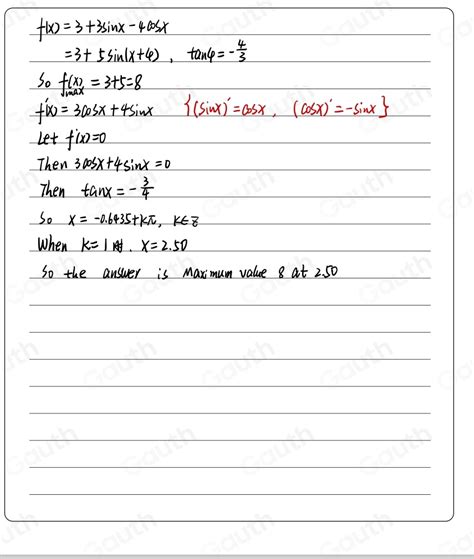 f(x) = 3 + 3sinx - 4cosx
= 3 + 5sin(x+φ), tanφ = -4/3
So f(x)max = 3+5=8
f'(x) = 3cosx + 4sinx {(sinx)'=cosx, (cosx)'=-sinx}
Let f'(x)=0
Then 3cosx+4sinx=0
Then tanx = -3/4
So x = -0.6435+kπ, k∈Z
When k=1 时. x=2.50
So the answer is Maximum value 8 at 2.50
Gauth